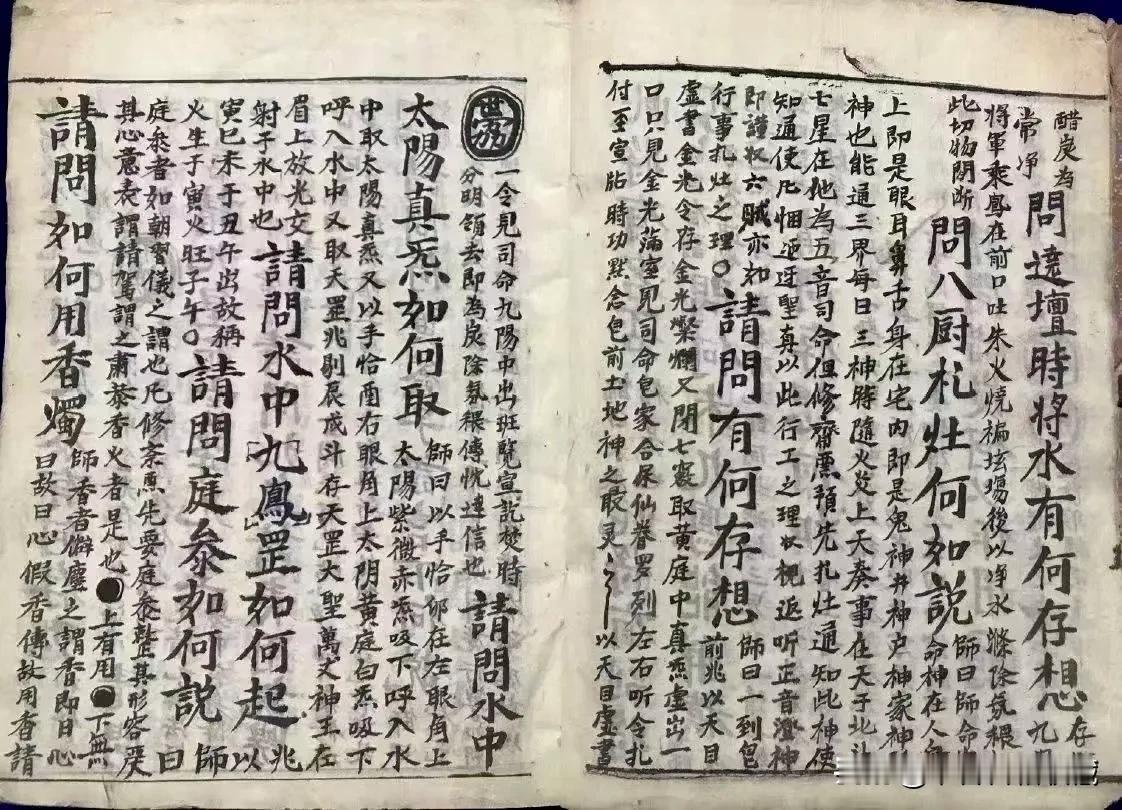 醋炭為
常净
問遶壇時將水有何存想
存
九
將軍乘鳳在前口吐朱火燒褊坛場後以净水滌除氛穢
此切物閉断
問八厨札灶何如説
師曰師命
命神在人
上即是眼耳鼻舌身在宅内即是鬼神井神户神家神
神也能通三界每日三神將隨火炎上天奏事在天于北斗
七星在他為五音司命但修齋醮預先扎灶通知此神使
知通使凡悃迓聖真以此行工之理收視返听正音澄神
即讃收六贼亦如
行事扎灶之理○
請問有何存想
師曰一到皂
前兆以天目
虚書金光令存金光燦爛又閉七竅取黄庭中真炁虚出一
口只見金光滿室見司命皂家合保仙眷罗列左右听令扎
付至宣帖時功黙念皂前土地神之最灵以天目虚書
一令見司命九陽中出班覧宣訖焚時
分明領去即為炭除氛穢傳恍達信也
請問水中
太陽真炁如何取
師曰以手恰卯在左眼角上
太陽紫微赤炁吸下呼入水
中取太陽真炁又以手恰酉右眼角上太阴黄庭白炁吸下
呼入水中又取天罡兆剔辰戍斗存天罡大聖萬丈神王在
眉上放光交
射于水中也
請問水中九鳳罡如何起
兆
以
寅巳未于丑午出故稱
火生于寅火旺子午○
請問庭叅如何説
師
曰
庭叅者如朝習儀之謂也凡修斋醮先要庭叅整其形容嚴
其心意表謂請駕謂之肅恭香火者是也●上有用●下無
請問如何用香燭
師香者僻塵之謂香即日心
曰故曰心假香傳故用香請